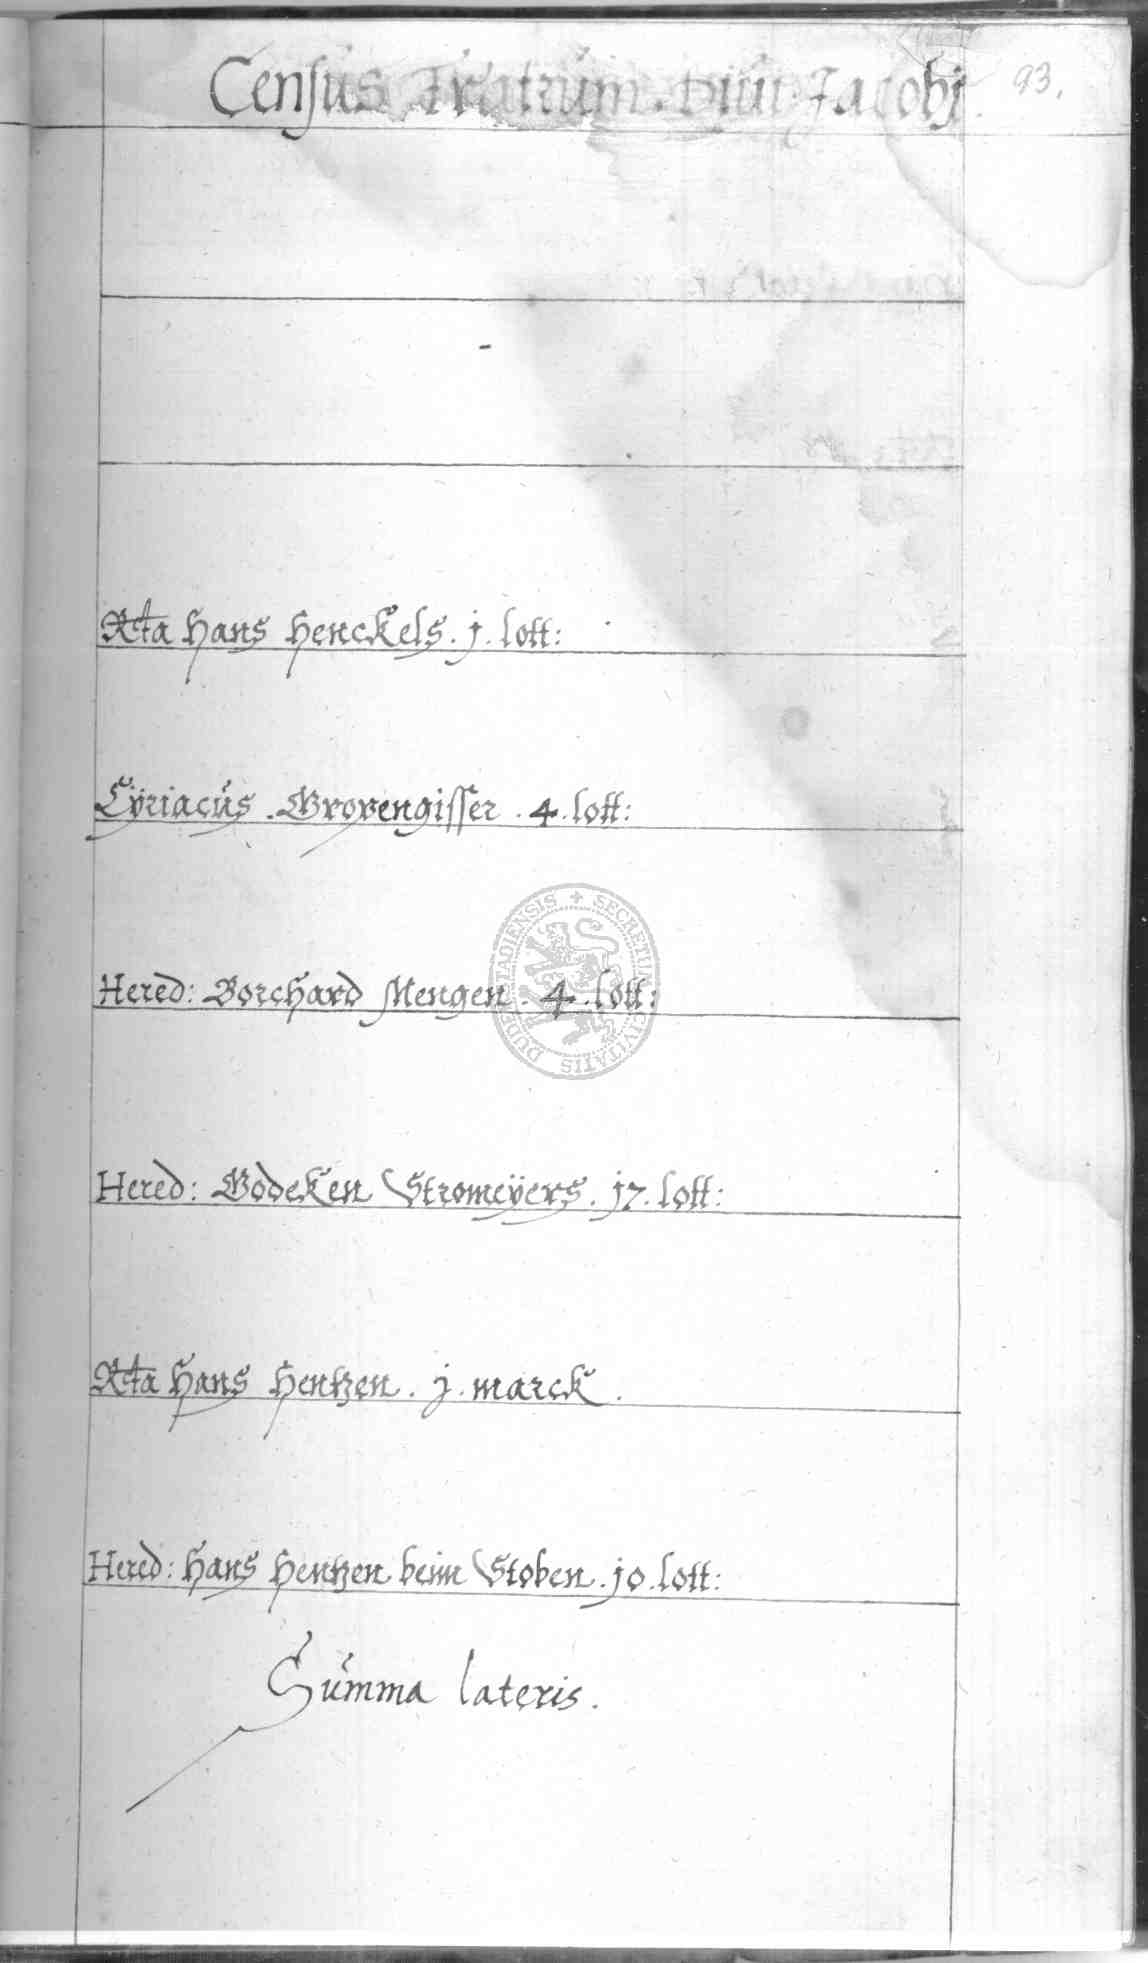 Census Fratrum Diui Jacobj.
93.
Rta Hans Henckels. j. lott:
Cÿriacus. Gropengisser. 4. lott:
Hered: Borchard Mengen. 4. lott:
Hered: Bodeken Stromeÿers. j7. lott:
Rta Hans Hentzen. j. marck.
Hered: Hans Hentzen beim Stoben. jo. lott:
Summa lateris.
SECRETUM CIVITATIS DUDERSTADIENSIS